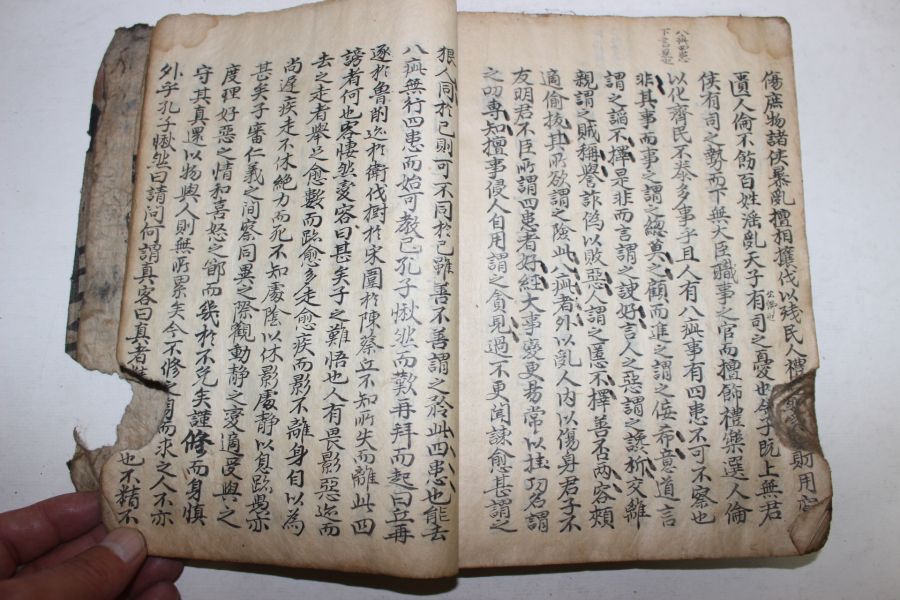 八疵四患
傷庶物諸侯暴亂擅相攘伐以殘民人禮財用窮
匱人倫不飭百姓淫亂天子有司之憂也今子既上無君
侯有司之勢而下無大臣職事之官而擅飭禮樂選人倫
以化齊民不泰多事乎且人有八疵事有四患不可不察也
非其事而事之謂之總莫之顧而進之謂之佞希意道言
謂之諂不擇是非而言謂之諛好言人之惡謂之讒析交離
親謂之賊稱譽詐偽以敗惡人謂之慝不擇善否兩容頰
適偷拔其所欲謂之險此八疵者外以亂人內以傷身君子不
友明君不臣所謂四患者好經大事變更易常以挂功名謂
之叨專知擅事侵人自用謂之貪見過不更聞諫愈甚謂之
狠人同於己則可不同於己雖善不善謂之矜此四患也能去
八疵無行四患而始可教已孔子愀然而歎再拜而起曰丘再
逐於魯削迹於衛伐樹於宋圍於陳蔡丘不知所失而離此四
謗者何也客悽然變容曰甚矣子之難悟也人有畏影惡迹而
去之走者舉足愈數而跡愈多走愈疾而影不離身自以為
尚遲疾走不休絕力而死不知處陰以休影處靜以息跡愚亦
甚矣子審仁義之間察同異之際觀動静之變適受與之
度理好惡之情和喜怒之節而幾於不免矣謹修而身慎
守其真還以物與人則無所累矣今不修之身而求之人不亦
外乎孔子愀然曰請問何謂真客曰真者精也不精不